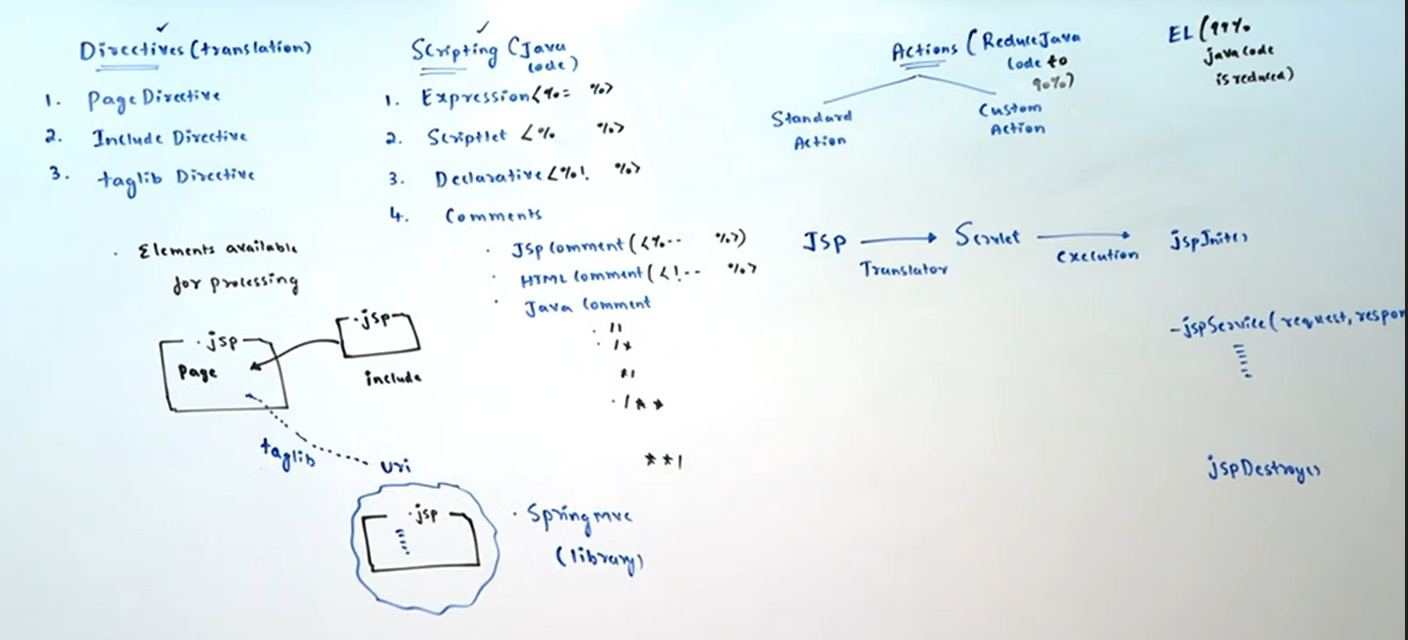 Directives (translation)
1. Page Directive
2. Include Directive
3. taglib Directive
. Elements available
for processing
.jsp
Page
.jsp
include
taglib
uri
.jsp
. Spring mvc
(library)
Scripting (Java
code)
1. Expression <%= %>
2. Scriptlet <% %>
3. Declarative <%! %>
4. Comments
. JSP Comment (<%-- %>)
. HTML Comment (<!-- %>
. Java Comment
. //
. /*
*/
. /**
**/
Actions (Reduce Java
Code to
90%)
Standard
Action
Custom
Action
EL (99%
java code
is reduced)
JSP
Translator
Servlet
Execution
jspInit()
-jspService(request, respon
jspDestroy()